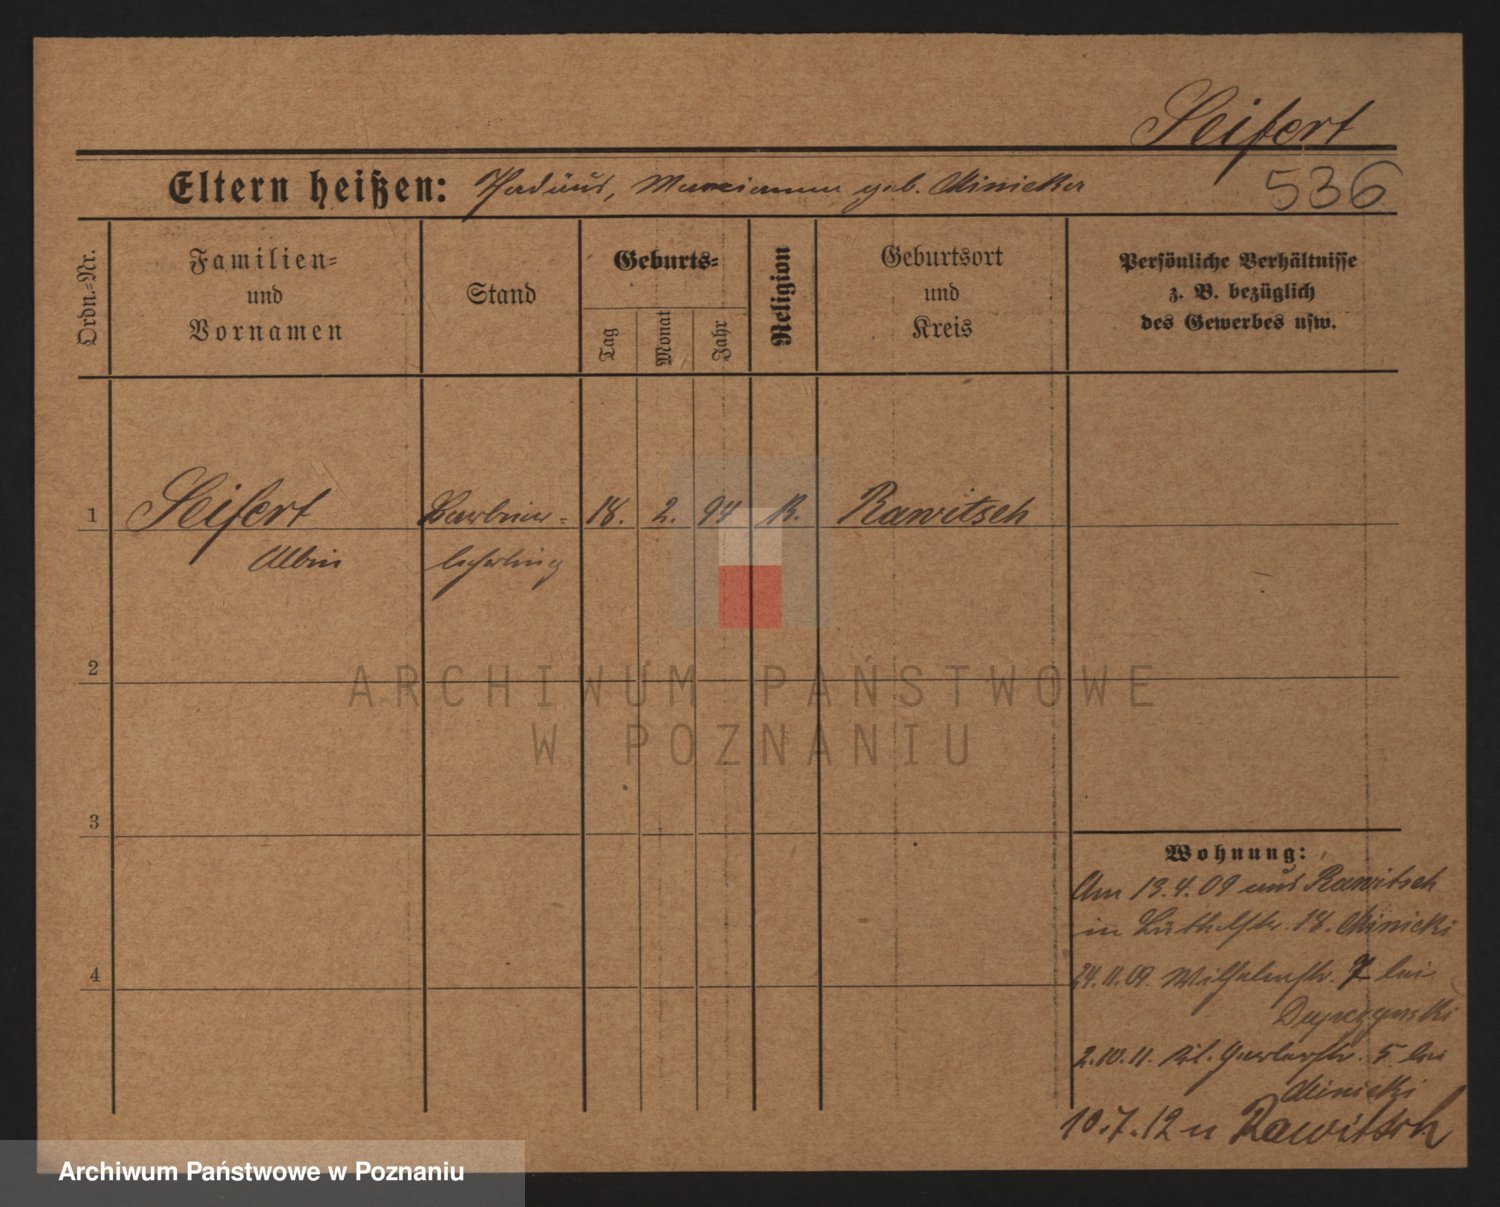 Seifert
Eltern heißen: geb. Minicka
536
Ordn.-Nr.
Familien-
und
Vornamen
Stand
Geburts-
Tag
Monat
Jahr
Religion
Geburtsort
und
Kreis
Persönliche Verhältnisse
z. B. bezüglich
des Gewerbes usw.
1 Seifert Barbier- 18. 2. 94 K. Rawitsch
Albin lehrling
2
ARCHIWUM PAŃSTWOWE
W POZNANIU
3
Wohnung:
Am 13.4.09 aus Rawitsch
in 18. Minicki
4
24.11.09. Wilhelmstr. 7 bei
2.10.11. 5 bei
Minicki
10.7.12 n Rawitsch
Archiwum Państwowe w Poznaniu